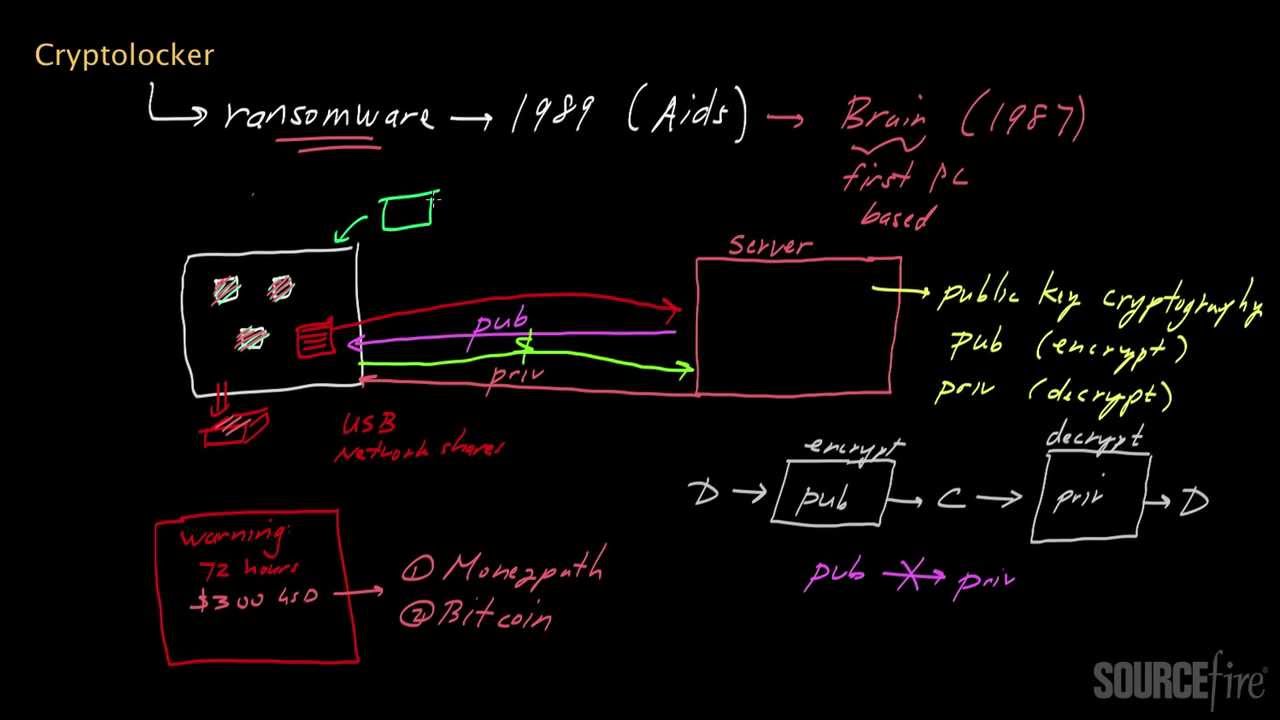 Cryptolocker
ransomware → 1989 (Aids) → Brain (1987)
first PC
based
Server
public key cryptography
pub (encrypt)
priv (decrypt)
pub
$
priv
USB
Network shares
encrypt
decrypt
D → pub → C → priv → D
pub → priv
Warning:
72 hours
$300 USD
① Moneypath
② Bitcoin
SOURCEfire®